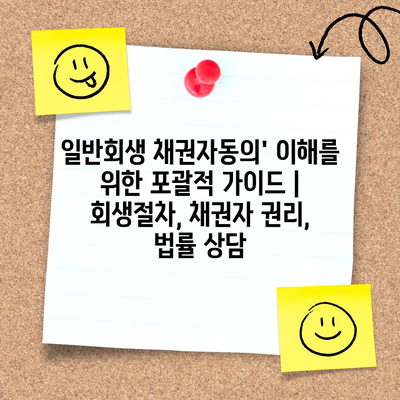 일반회생 채권자동의' 이해를
위한 포괄적 가이드 |
회생절차, 채권자 권리,
법률 상담